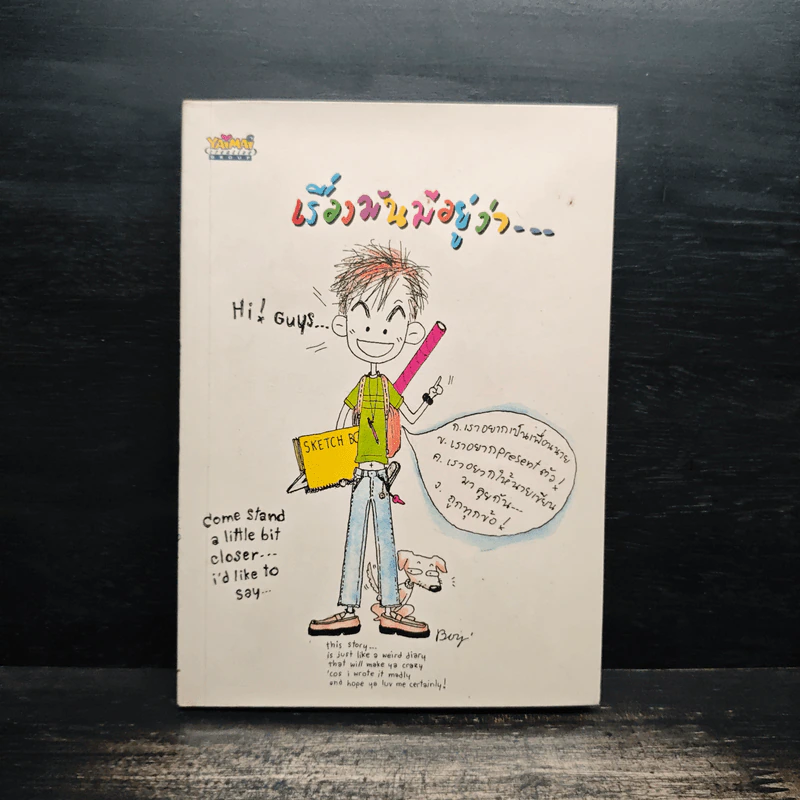 YaiMai
CREATIVE
GROUP
เรื่องมันมีอยู่ว่า---
Hi! Guys...
SKETCH BO
ก. เราอยากเป็นเพื่อนนาย
ข. เราอยากpresent ตัว!
ค. เราอยากให้นายเขียน
มาคุยกัน...
ง. ถูกทุกข้อ!
Come stand
a little bit
closer---
i'd like to
say...
Boy'
this story...
is just like a weird diary
that will make ya crazy
'cos i wrote it madly
and hope ya luv me certainly!